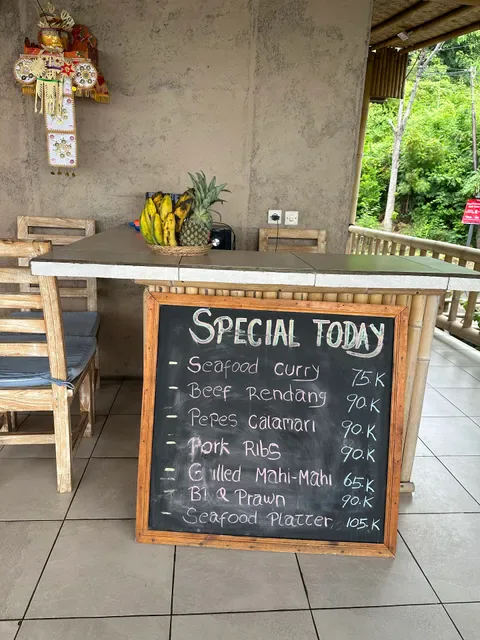 SPECIAL TODAY
- Seafood curry 75K
- Beef Rendang 90.K
- Pepes Calamari 90.K
- Pork Ribs 90.K
- G illed Mahi-Mahi 65.K
- B! & Prawn 90.K
- Seafood Platter 105.K